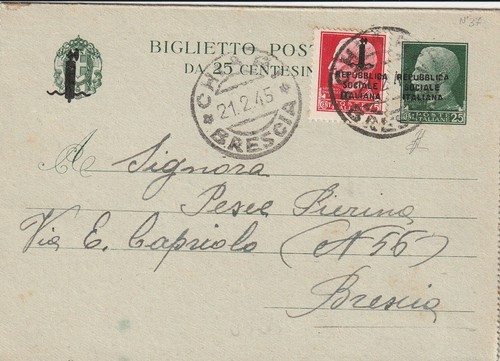 N°37
BIGLIETTO POST
DA 25 CENTESIM
21.2.45
BRESCIA
REPUBBLICA
SOCIALE
ITALIANA
REPUBBLICA
SOCIALE
ITALIANA
POSTE
ITALIANE
25
A Signora
Pesce Pierina
Via E. Capriolo (N 56)
Brescia